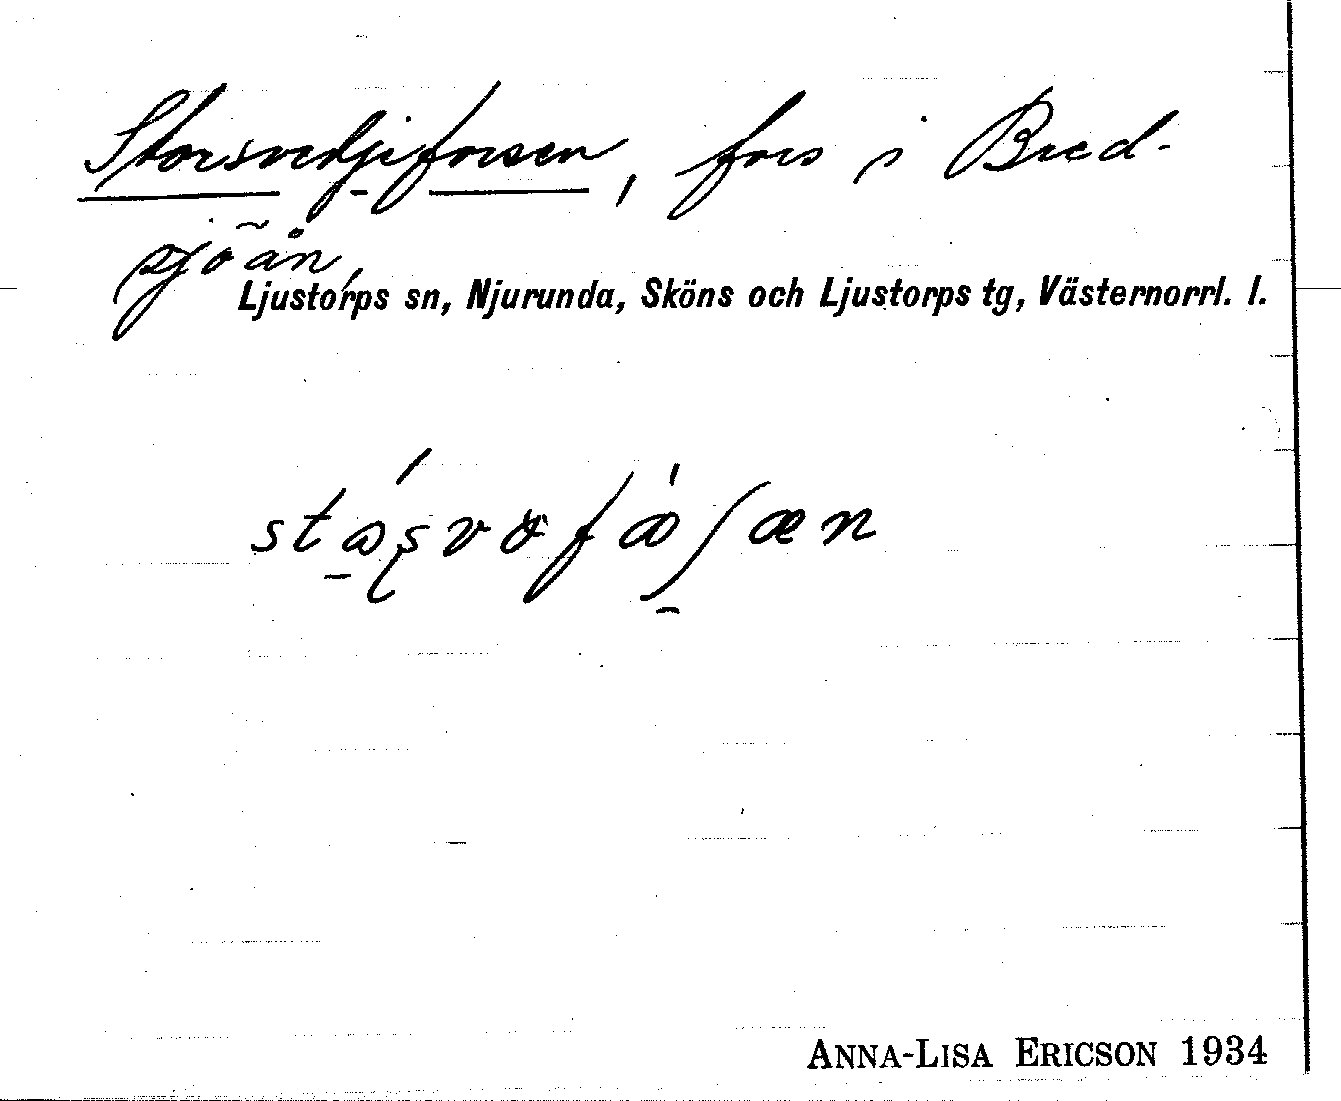 Storsvedjeforsen, fors i Bred-
sjöån,
Ljustorps sn, Njurunda, Sköns och Ljustorps tg, Västernorrl. l.
ANNA-LISA ERICSON 1934